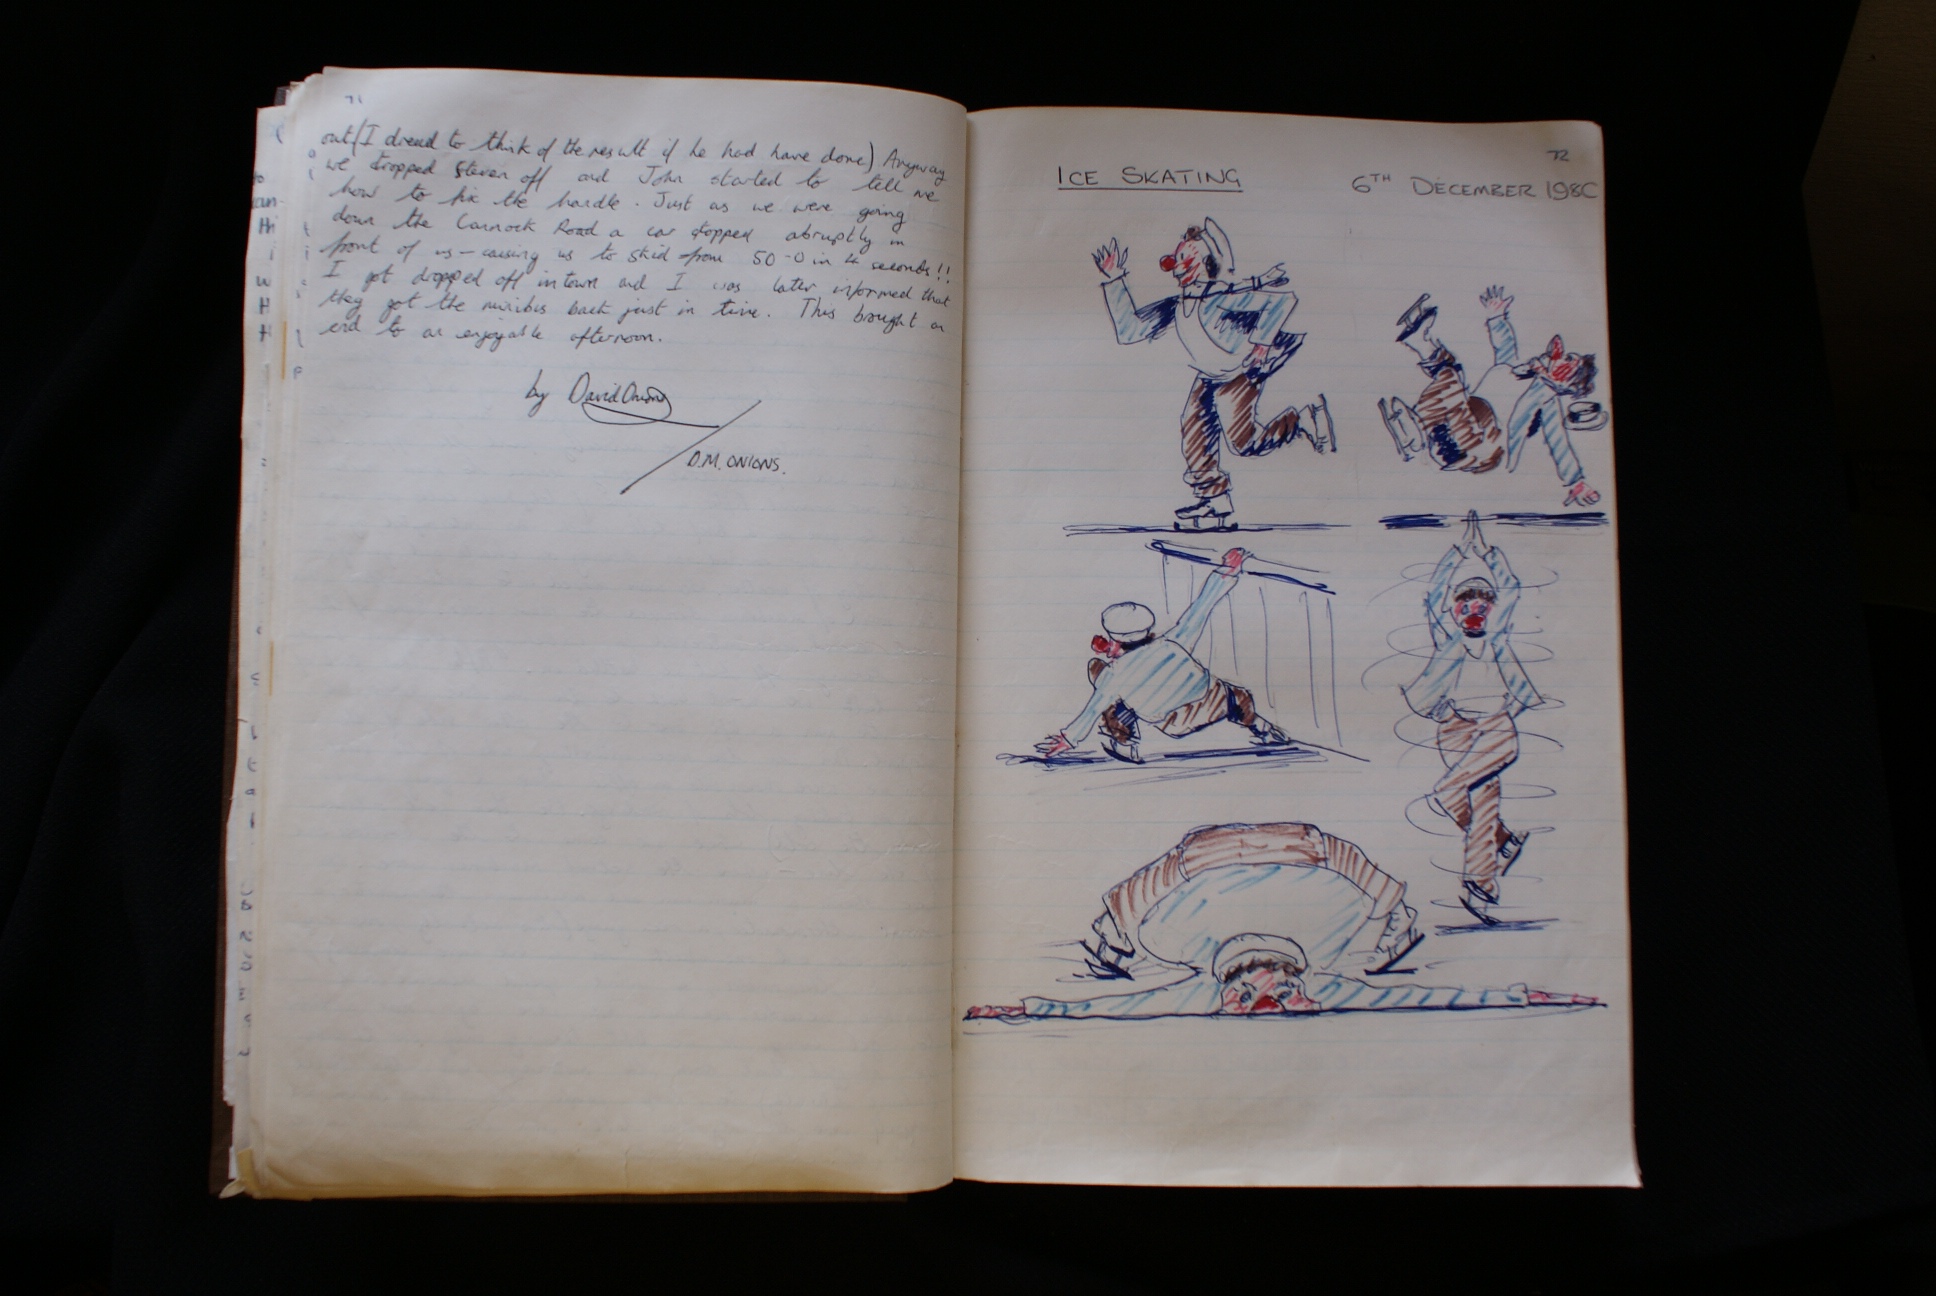 71
out (I dread to think of the result if he had have done) Anyway
we dropped Steven off and John started to tell me
how to fix the handle. Just as we were going
down the Cannock Road a car stopped abruptly in
front of us - causing us to skid from 50-0 in 4 seconds!!
I got dropped off in town and I was later informed that
they got the minibus back just in time. This brought an
end to an enjoyable afternoon.
by David Onions
D.M. ONIONS.
72
ICE SKATING
6TH DECEMBER 1980